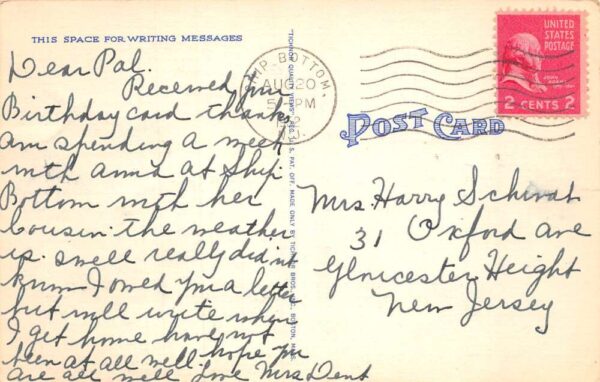 THIS SPACE FOR WRITING MESSAGES
Dear Pal.
Received your
Birthday card thanks,
Am spending a week
with anna at Ship
Bottom with her
cousin. the weather
is swell really did nt
know I owed you a letter
but will write when
I get home have not
been at all well hope you
are all well Love Mrs Dent
SHIP BOTTOM.
AUG 20
PM
N.J.
UNITED
STATES
POSTAGE
JOHN
ADAMS
2 CENTS 2
POST CARD
Mrs Harry Schwab
31 Oxford ave
Gloucester Height
New Jersey